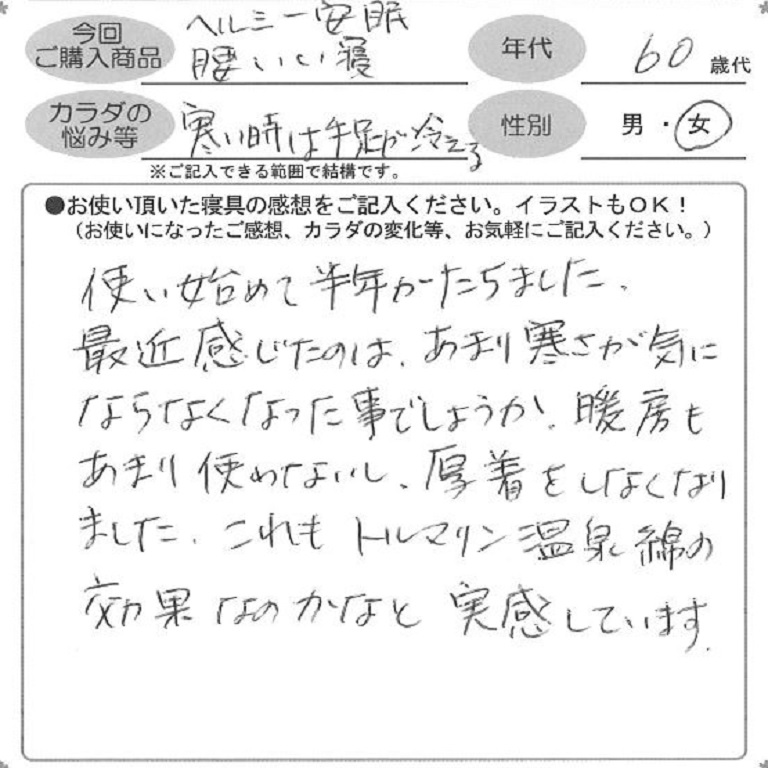 今回
ご購入商品
ヘルミー安眠
腰いい寝
年代
60 歳代
カラダの
悩み等
寒い時は手足が冷える
性別
男・女
※ご記入できる範囲で結構です。
●お使い頂いた寝具の感想をご記入ください。イラストもOK！
（お使いになったご感想、カラダの変化等、お気軽にご記入ください。）
使い始めて半年がたちました。
最近感じたのは、あまり寒さが気に
ならなくなった事でしょうか、暖房も
あまり使わないし、厚着をしなくなり
ました。これもトルマリン温泉綿の
効果なのかなと実感しています。